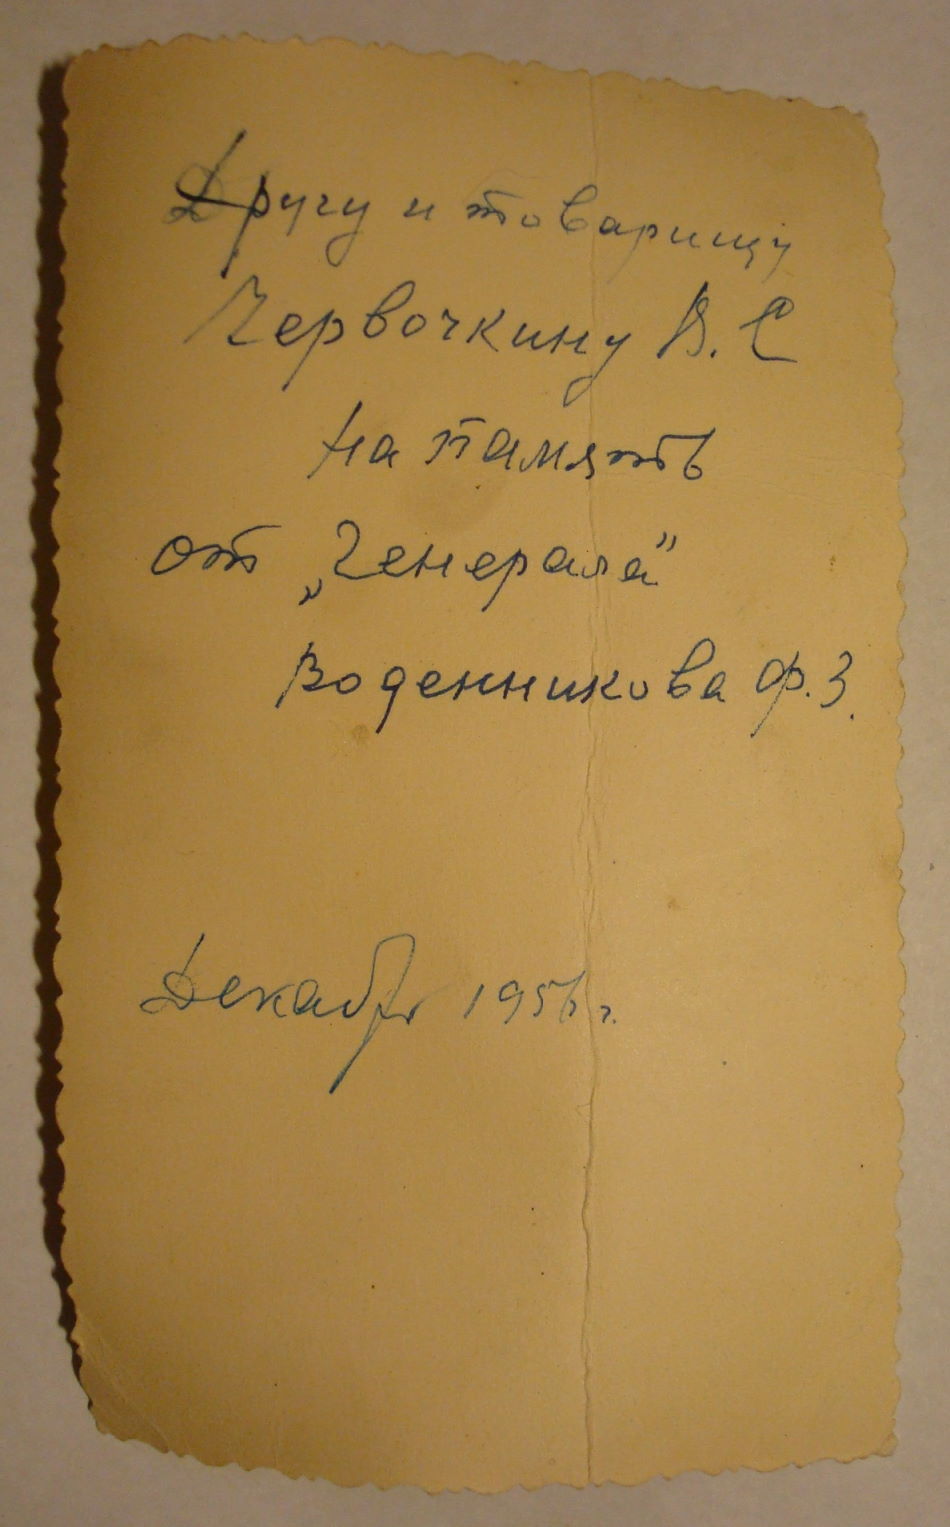 Другу и товарищу
Червочкину В.С
на память
от „Генерала"
Воденникова Ф.З.
Декабрь 1956 г.